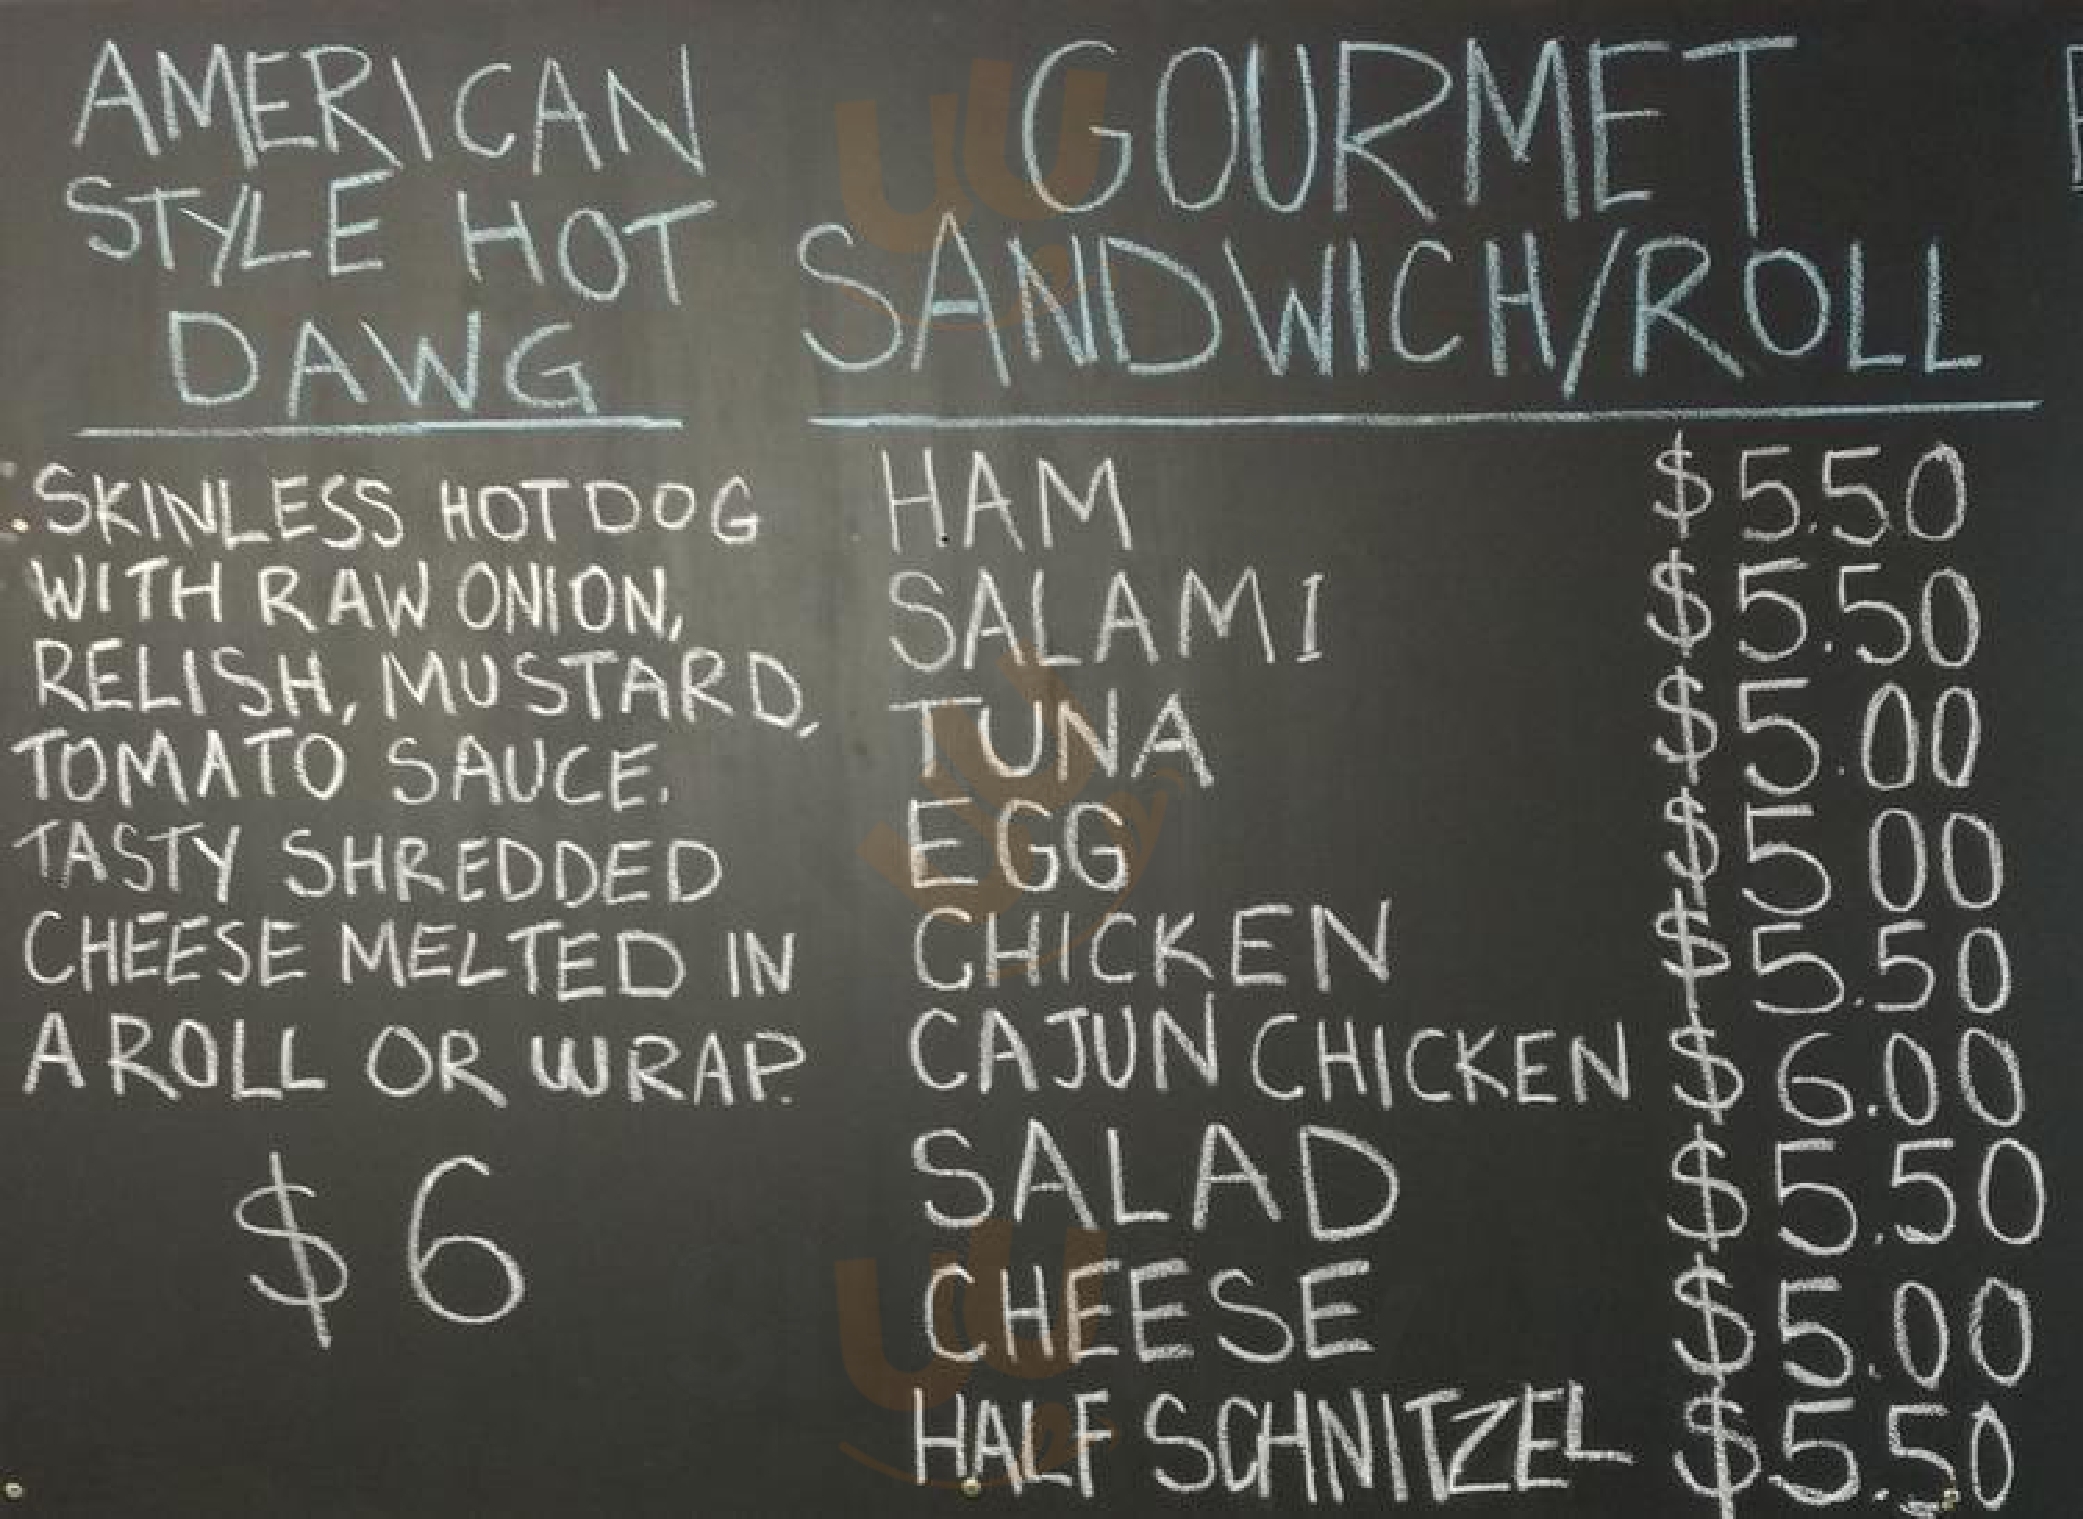 AMERICAN
STYLE HOT
DAWG
. SKINLESS HOTDOG
WITH RAW ONION,
RELISH, MUSTARD,
TOMATO SAUCE.
TASTY SHREDDED
CHEESE MELTED IN
A ROLL OR WRAP.
$6
GOURMET
SANDWICH/ROLL
HAM $5.50
SALAMI $5.50
TUNA $5.00
EGG $5 00
CHICKEN $5.50
CAJUN CHICKEN $6.00
SALAD $5.50
CHEESE $5.00
HALF SCHNITZEL $5.50